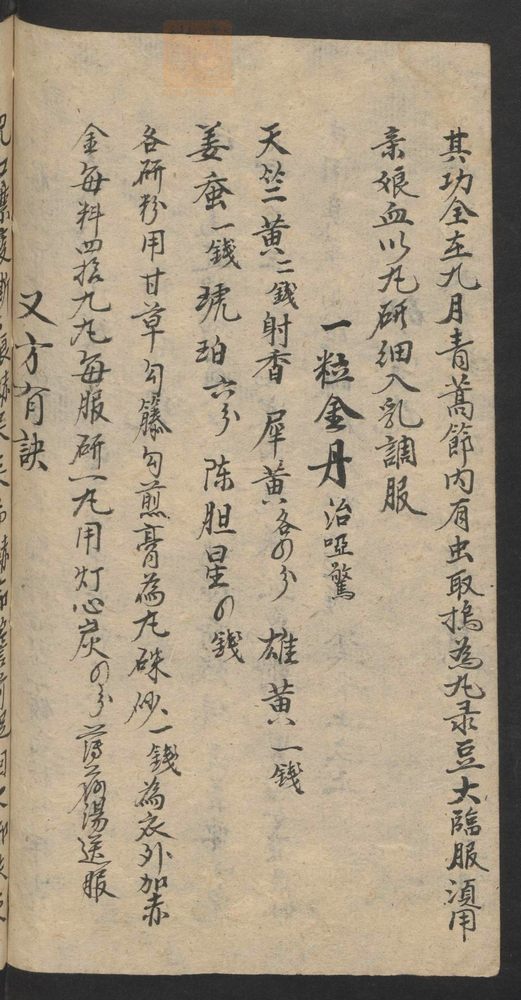 其功全在九月青蒿節内有虫取搗為丸录豆大臨服須用
亲娘血以丸研细入乳調服
一粒金丹 治啞驚
天竺黄二錢 射香 犀黄各四分 雄黄一錢
姜蚕一錢 琥珀六分 陈胆星四錢
各研粉用甘草勾籐勾煎膏為丸硃砂一錢為衣外加赤
金每料四拾九丸每服研一丸用灯心炭四分薄荷湯送服
又方有訣